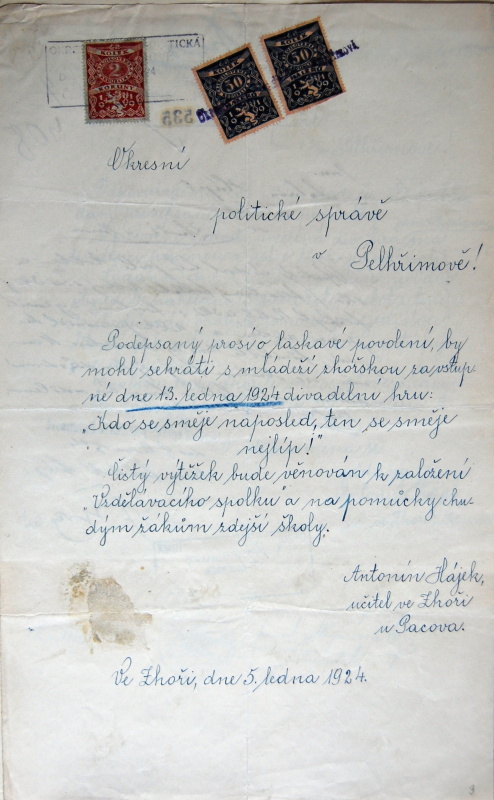 TICKÁ
KOLEK
2
KORUNY
KOLEK
50
KOLEK
50
535
Okresní
politické správě
v Pelhřimově!
Podepsaný prosí o laskavé povolení, by
mohl sehráti s mládeží zhořskou za vstup-
né dne 13. ledna 1924 divadelní hru:
„Kdo se směje naposled, ten se směje
nejlíp!"
Čistý výtěžek bude věnován k založení
„Vzdělávacího spolku" a na pomůcky chu-
dým žákům zdejší školy.
Antonín Hájek,
učitel ve Zhoři
u Pacova.
Ve Zhoři, dne 5. ledna 1924.